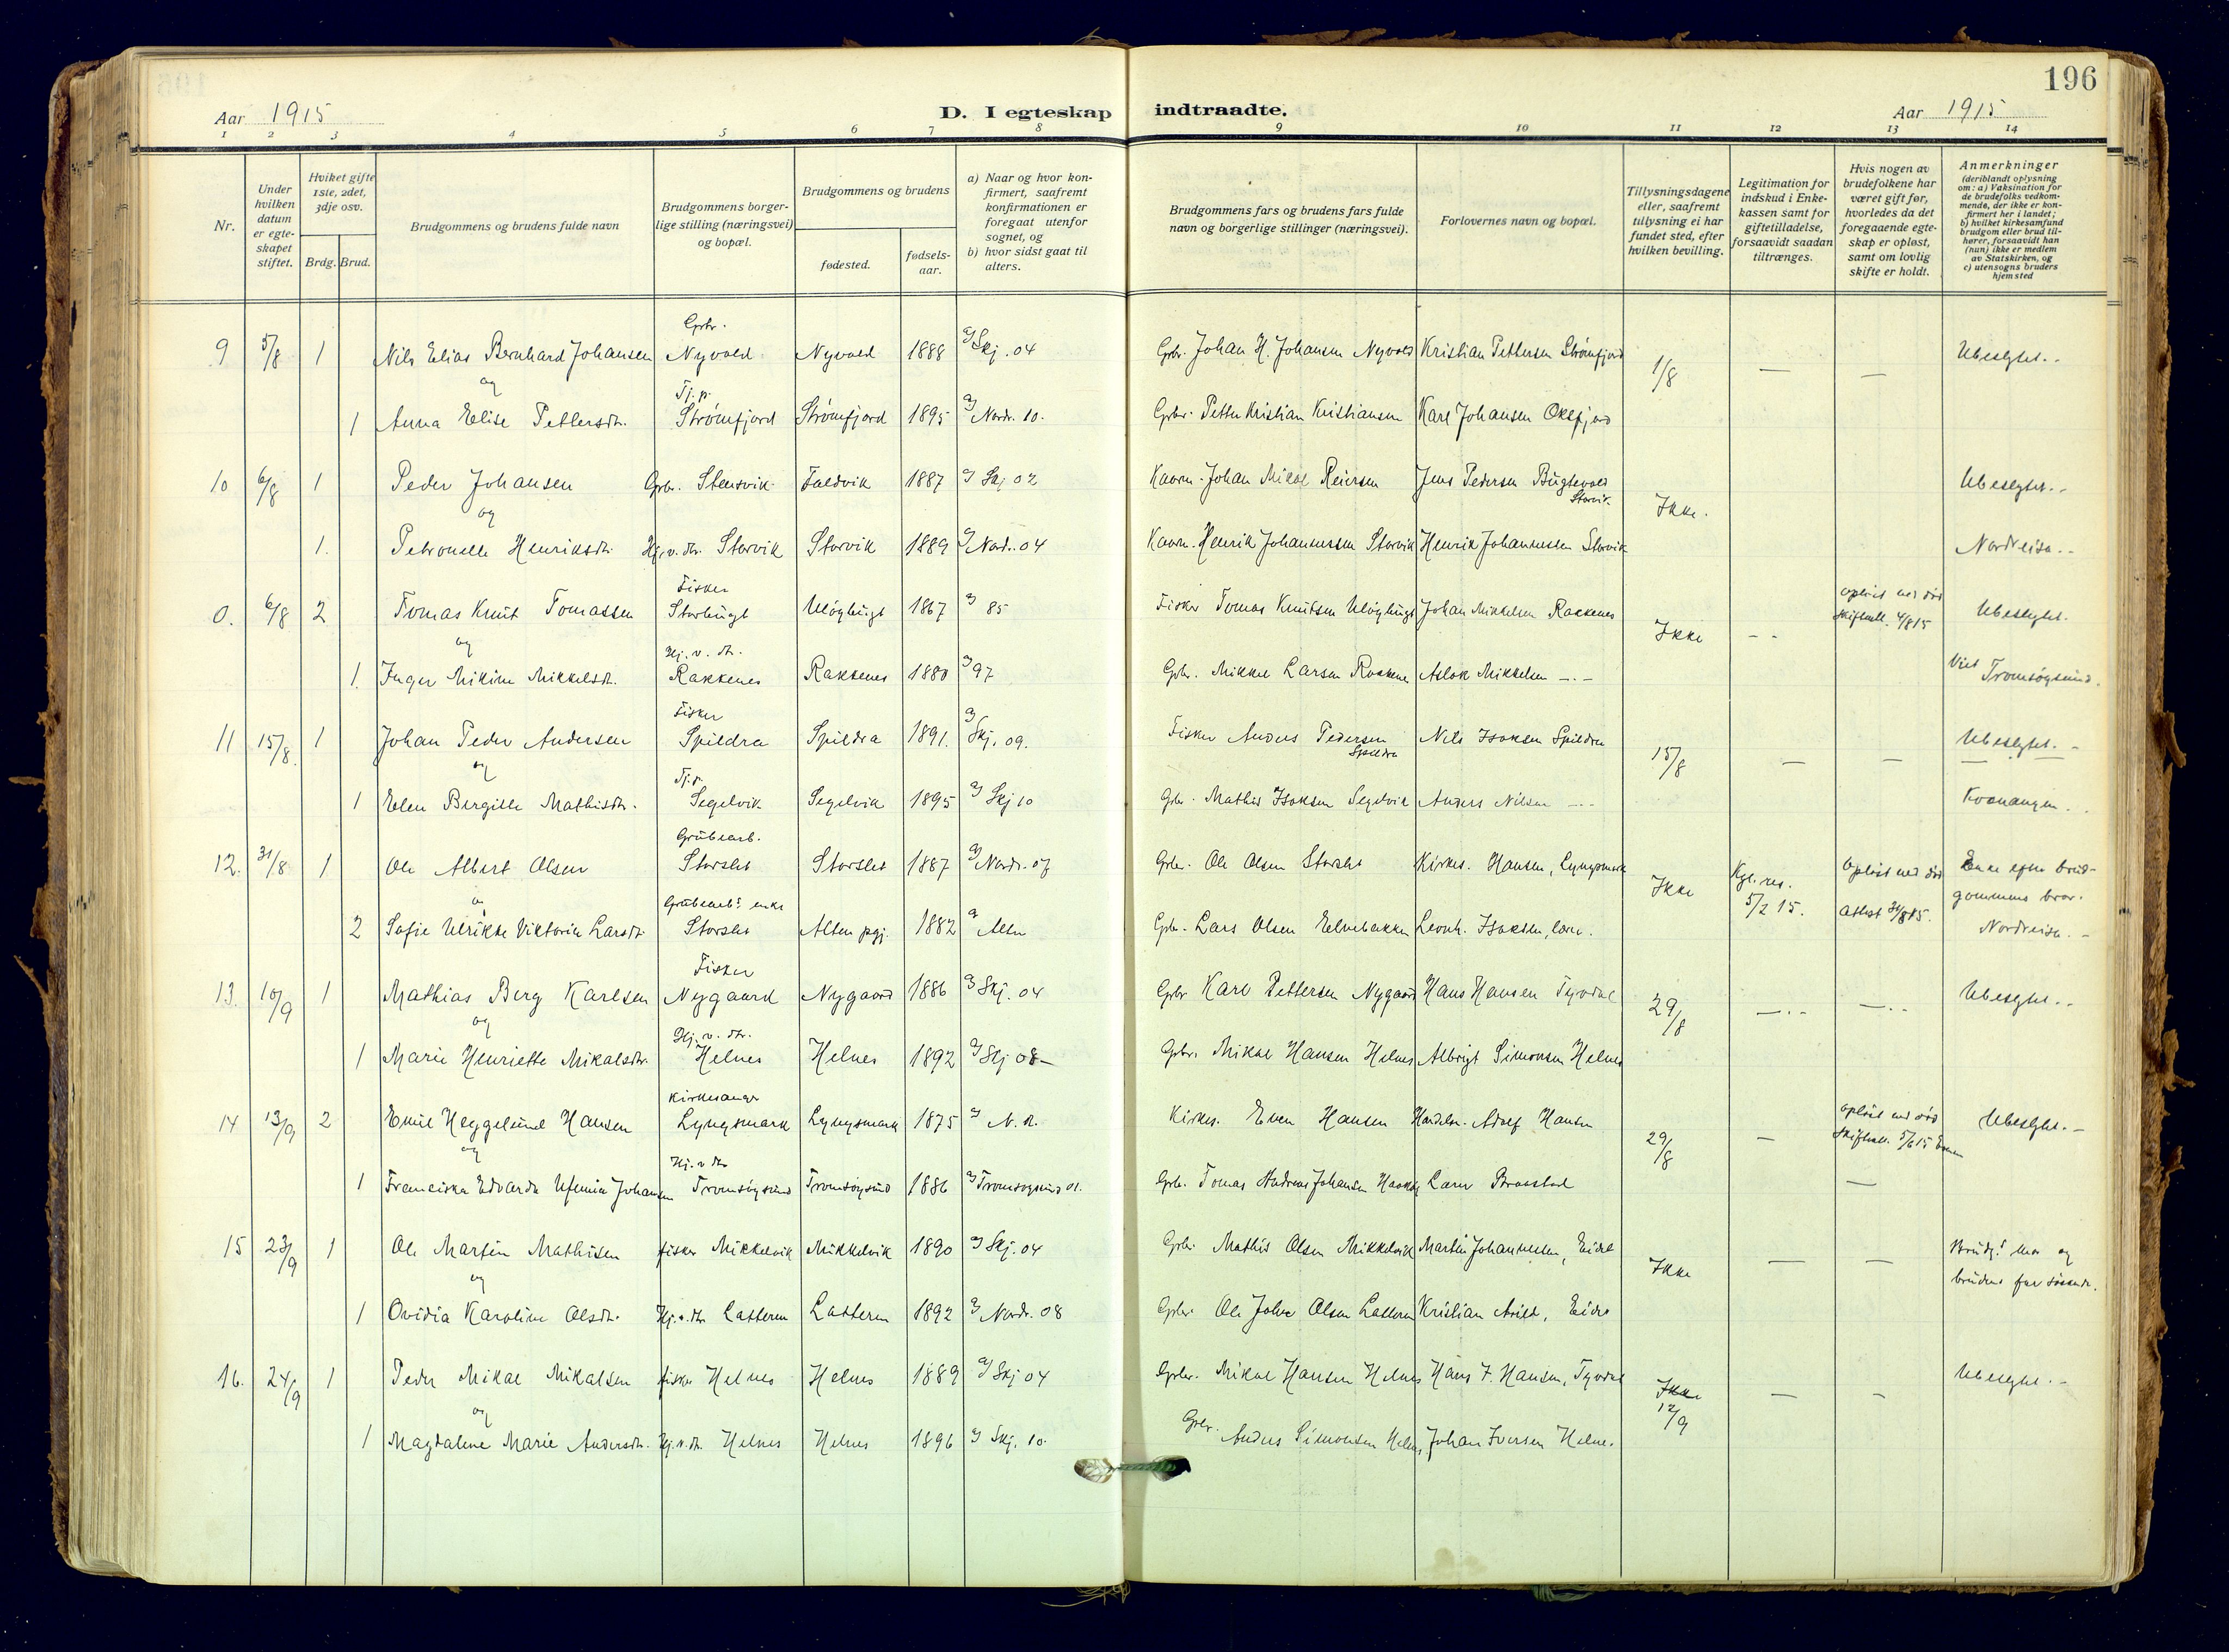 196
Aar 1915
D. I egteskap indtraadte.
Aar 1915
1 2 3 4 5 6 7 8 9 10 11 12 13 14
Nr.
Under hvilken datum er egteskapet stiftet.
Hviket gifte 1ste, 2det, 3dje osv.
Brdg. Brud.
Brudgommens og brudens fulde navn
Brudgommens borgerlige stilling (næringsvei) og bopæl.
Brudgommens og brudens
fødested.
fødselsaar.
a) Naar og hvor konfirmert, saafremt konfirmationen er foregaat utenfor sognet, og
b) hvor sidst gaat til alters.
Brudgommens fars og brudens fars fulde navn og borgerlige stillinger (næringsvei).
Forlovernes navn og bopæl.
Tillysningsdagene eller, saafremt tillysning ei har fundet sted, efter hvilken bevilling.
Legitimation for indskud i Enkekassen samt for giftetilladelse, forsaavidt saadan tiltrænges.
Hvis nogen av brudefolkene har været gift før, hvorledes da det foregaaende egteskap er opløst, samt om lovlig skifte er holdt.
Anmerkninger
(deriblandt oplysning om: a) Vaksination for de brudefolks vedkommende, der ikke er konfirmert her i landet; b) hvilket kirkesamfund brudgom eller brud tilhører, forsaavidt han (hun) ikke er medlem av Statskirken, og c) utensogns bruders hjemsted
Gbr.
9 5/8 1 Nils Elias Bernhard Johansen Nyvold Nyvold 1888 a) Skj. 04 Gbr. Johan H. Johansen Nyvold Kristian Pettersen Strømfjord 1/8 — — Ubeslgtet.
og Tj.p.
1 Anna Elise Pettersdtr. Strømfjord Strømfjord 1895 a) Nordr. 10. Gbr. Petter Kristian Kristiansen Karl Johansen Oksfjord
10 6/8 1 Peder Johansen Gbr. Stensvik Faldvik 1887 a) Skj 02 Kaarm. Johan Mikal Reiersen Jens Pedersen Bugtevold Storvik Ikke. Ubeslgtet.
og
1. Petronelle Henriksdtr. Hj. v. dtr. Storvik Storvik 1889 a) Nord. 04 Kaarm. Henrik Johannessen Storvik Henrik Johannessen Storvik Nordreisa.
Fisker
0. 6/8 2 Tomas Knut Tomassen Storbugt Uløybugt 1867 a) 85 Fisker Tomas Knutsen Uløybugt Johan Mikkelsen Rakkenes Ikke opløst ved død skifteatt. 4/8 15 Ubeslgtet.
og Hj. v. dtr.
1. Inger Nikine Mikkelsdtr. Rakkenes Rakkenes 1880 a) 97 Gbr. Mikkel Larsen Rakkenes Aslak Mikkelsen — Viet Tromsøysund.
Fisker
11 15/8 1 Johan Peder Andersen Spildra Spildra 1891. a) Skj. 09. Fisker Anders Pedersen Spildra Nils Isaksen Spildra 15/8 — — Ubeslgtet.
og Tj.p.
1 Elen Bergitte Mathisdtr. Segelvik Segelvik 1895 a) Skj 10 Gbr. Mathis Isaksen Segelvik Anders Nilsen — Kvænangen.
Grubearb.
12. 31/8 1 Ole Albert Olsen Storslet Storslet 1887 a) Nordr. 07 Gbr. Ole Olsen Storslet Kirkes. Hansen, Lyngsmark Ikke Kgl. res. 5/2 15. Opløst ved død Attest 31/8 15. Enke efter brudgommens bror. Nordreisa.
og Grubearb.s enke
2 Sofie Ulrikke Viktoria Larsdtr. Storslet Alten pgj. 1882 a) Alten Gbr. Lars Olsen Elvebakken Leonh. Isaksen, lær.
Fisker
13. 10/9 1 Mathias Berg Karlsen Nygaard Nygaard 1886 a) Skj. 04 Gbr Karl Pettersen Nygaard Hans Hansen Tyvdal 29/8 — — Ubeslgtet.
og Hj. v. dtr.
1 Marie Henriette Mikalsdtr. Helnes Helnes 1892 a) Skj 08 Gbr. Mikal Hansen Helnes Albrigt Simonsen Helnes
Kirkesanger
14 13/9 2 Emil Heggelund Hansen Lyngsmark Lyngsmark 1875 a) N. R. Kirkes. Even Hansen Handelsr. Adolf Hansen 29/8 — opløst ved død Skifteatt. 5/6 15 Ubeslgtet.
og Hj. v dtr
1 Franciska Edvarda Ufemia Johansen Tromsøysund Tromsøysund 1886 a) Tromsøysund 01. Gbr. Tomas Andreas Johansen Lærer Braastad —
15 23/9 1 Ole Martin Mathisen fisker Mikkelvik Mikkelvik 1890 a) Skj. 04 Gbr. Mathis Olsen Mikkelvik Martin Johannessen, Eide Ikke — — Brudg.s mor og brudens far søskende.
og
1 Ovidia Karoline Olsdtr. Hj. v. dtr Latteren Latteren 1892 a) Nordr. 08 Gbr. Ole Olsen Latteren Kristian Arild, Eide
16. 24/9 1 Peder Mikal Mikalsen fisker Helnes Helnes 1889 a) Skj 04 Gbr. Mikal Hansen Helnes Hans F. Hansen, Tyvdal Ikke 12/9 — — Ubeslgtet.
og
1 Magdalene Marie Andersdtr. Hj. v. dtr. Helnes Helnes 1896 a) Skj. 10. Gbr. Anders Simonsen Helnes Johan Iversen Helnes